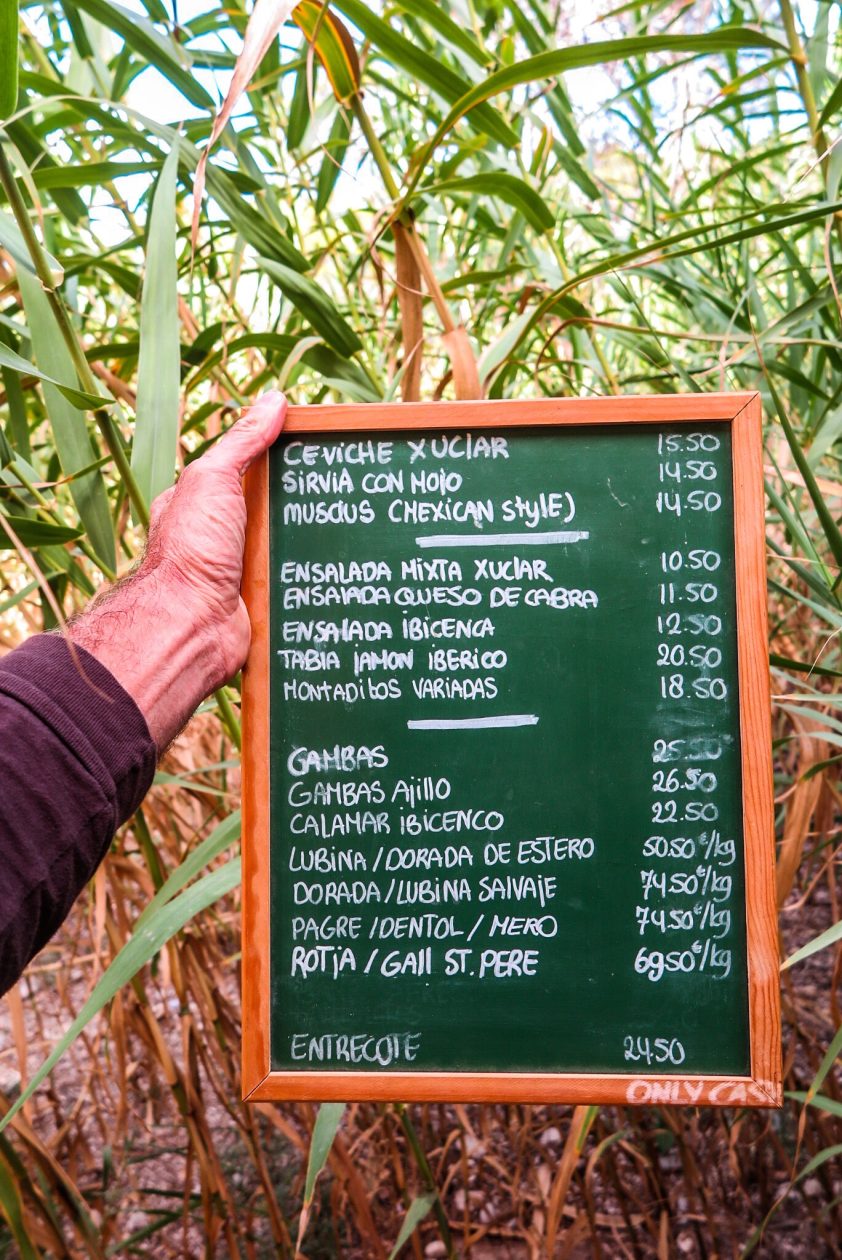 CEVICHE XUCLAR 15.50
SIRVIA CON MOJO 14.50
MUSCLUS (MEXICAN StylE) 14.50
ENSALADA MIXTA XUCLAR 10.50
ENSALADA QUESO DE CABRA 11.50
ENSALADA IBICENCA 12.50
TABLA JAMON IBERICO 20.50
MONTADITOS VARIADAS 18.50
GAMBAS 25.50
GAMBAS AjillO 26.50
CALAMAR IBICENCO 22.50
LUBINA / DORADA DE ESTERO 50.50 €/kg
DORADA / LUBINA SALVAJE 74.50 €/kg
PAGRE / DENTOL / MERO 74.50 €/kg
ROTJA / GALL ST. PERE 69.50 €/kg
ENTRECOTE 24.50
ONLY CASH